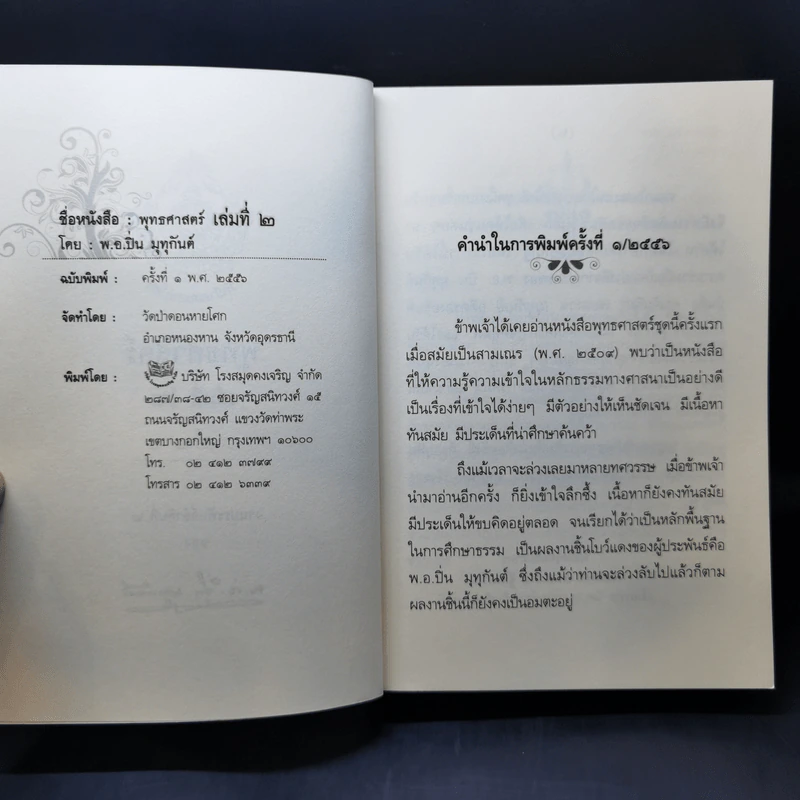 ชื่อหนังสือ : พุทธศาสตร์ เล่มที่ ๒
โดย : พ.อ.ปิ่น มุทุกันต์
ฉบับพิมพ์ : ครั้งที่ ๑ พ.ศ. ๒๕๕๖
จัดทำโดย : วัดป่าดอนหายโศก
อำเภอหนองหาน จังหวัดอุดรธานี
พิมพ์โดย : บริษัท โรงสมุดคงเจริญ จำกัด
๒๘๗/๓๘-๔๒ ซอยจรัญสนิทวงศ์ ๑๕
ถนนจรัญสนิทวงศ์ แขวงวัดท่าพระ
เขตบางกอกใหญ่ กรุงเทพฯ ๑๐๖๐๐
โทร. ๐๒ ๔๑๒ ๓๗๙๙
โทรสาร ๐๒ ๔๑๒ ๖๓๓๙
คำนำในการพิมพ์ครั้งที่ ๑/๒๕๕๖
ข้าพเจ้าได้เคยอ่านหนังสือพุทธศาสตร์ชุดนี้ครั้งแรก
เมื่อสมัยเป็นสามเณร (พ.ศ. ๒๕๐๙) พบว่าเป็นหนังสือ
ที่ให้ความรู้ความเข้าใจในหลักธรรมทางศาสนาเป็นอย่างดี
เป็นเรื่องที่เข้าใจได้ง่ายๆ มีตัวอย่างให้เห็นชัดเจน มีเนื้อหา
ทันสมัย มีประเด็นที่น่าศึกษาค้นคว้า
ถึงแม้เวลาจะล่วงเลยมาหลายทศวรรษ เมื่อข้าพเจ้า
นำมาอ่านอีกครั้ง ก็ยิ่งเข้าใจลึกซึ้ง เนื้อหาก็ยังคงทันสมัย
มีประเด็นให้ขบคิดอยู่ตลอด จนเรียกได้ว่าเป็นหลักพื้นฐาน
ในการศึกษาธรรม เป็นผลงานชิ้นโบว์แดงของผู้ประพันธ์คือ
พ.อ.ปิ่น มุทุกันต์ ซึ่งถึงแม้ว่าท่านจะล่วงลับไปแล้วก็ตาม
ผลงานชิ้นนี้ก็ยังคงเป็นอมตะอยู่